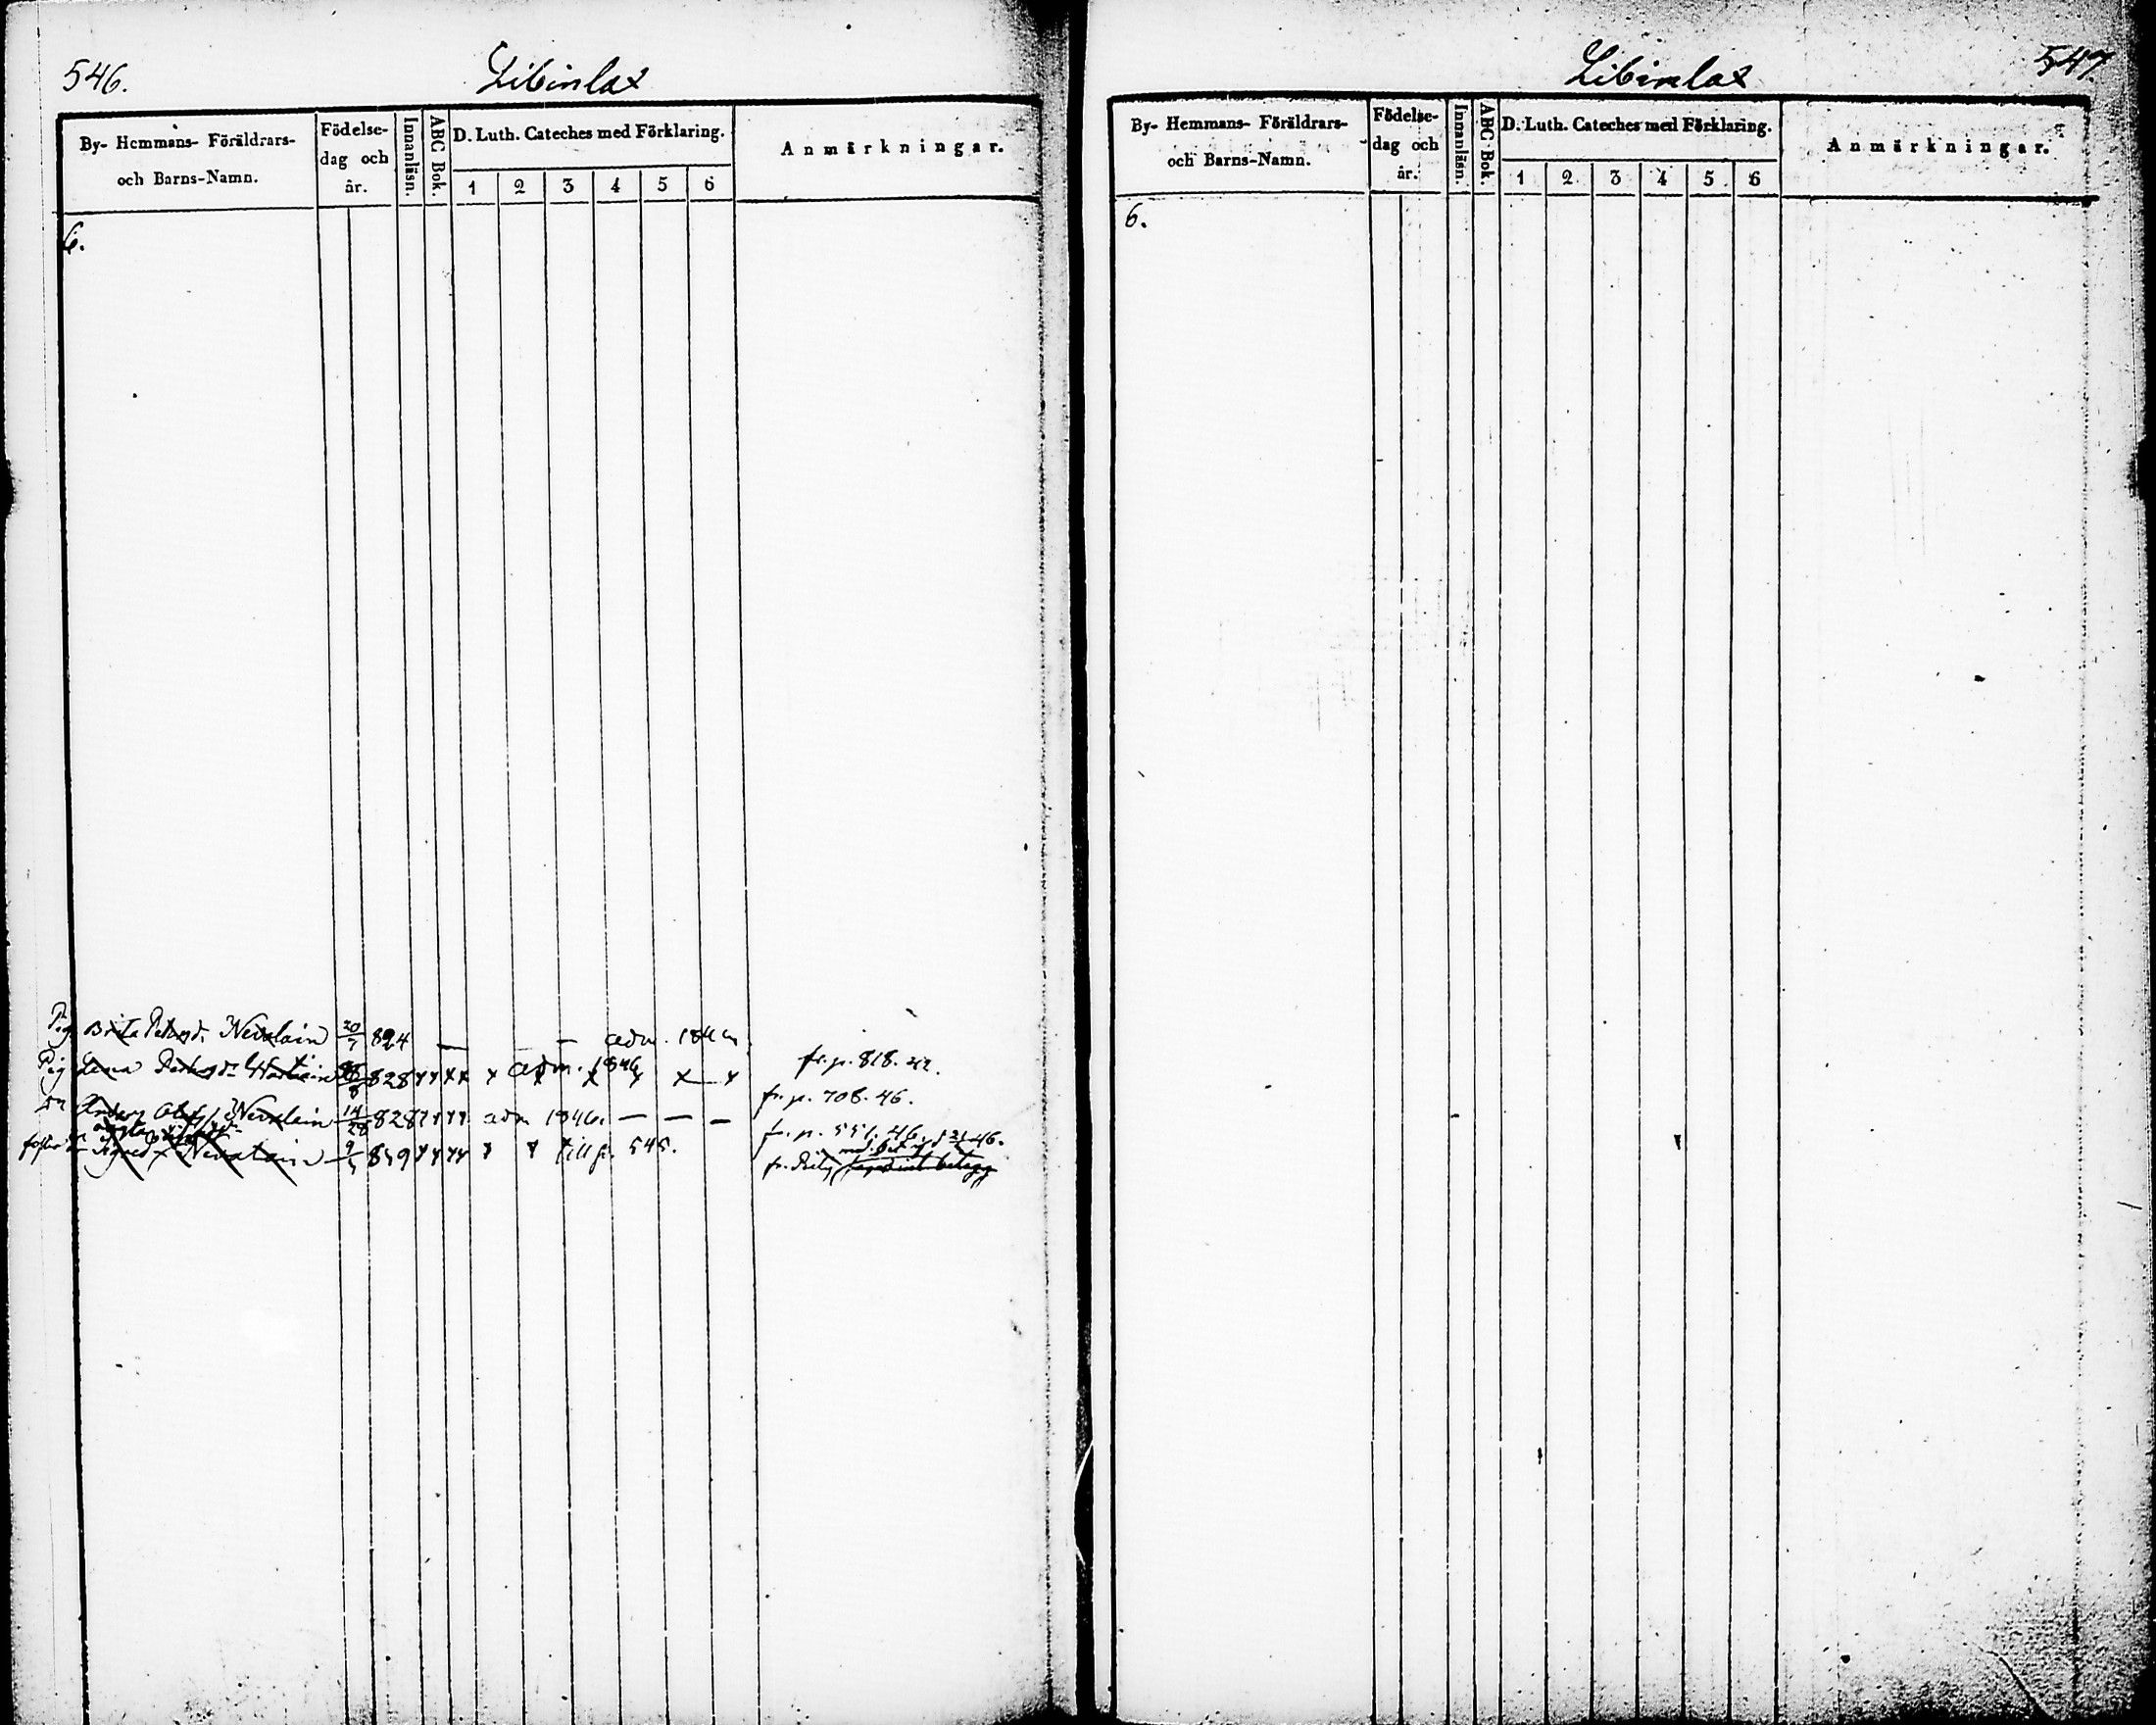 546.
Libinlax
By- Hemmans- Föräldrars-
och Barns-Namn.
Födelse-
dag och
år.
Innanläsn.
ABC Bok.
D. Luth. Cateches med Förklaring.
1 2 3 4 5 6
Anmärkningar.
6.
Pig. Brita Petersd. Nevalain 20/7 824 — — — adm. 184
fr. p. 818. 42.
Pig Lena 828 x x x x x adm. 1846 x x x x x
fr. p. 708. 46.
Dr Anders Olofss. Nevalain 14/28 828 adm 1846. — — —
fr. p. 551. 46.
Sigrid Nevalain 9/5 839 till p. 545.
547.
Libinlax
By- Hemmans- Föräldrars-
och Barns-Namn.
Födelse-
dag och
år.
Innanläsn.
ABC Bok.
D. Luth. Cateches med Förklaring.
1 2 3 4 5 6
Anmärkningar.
6.